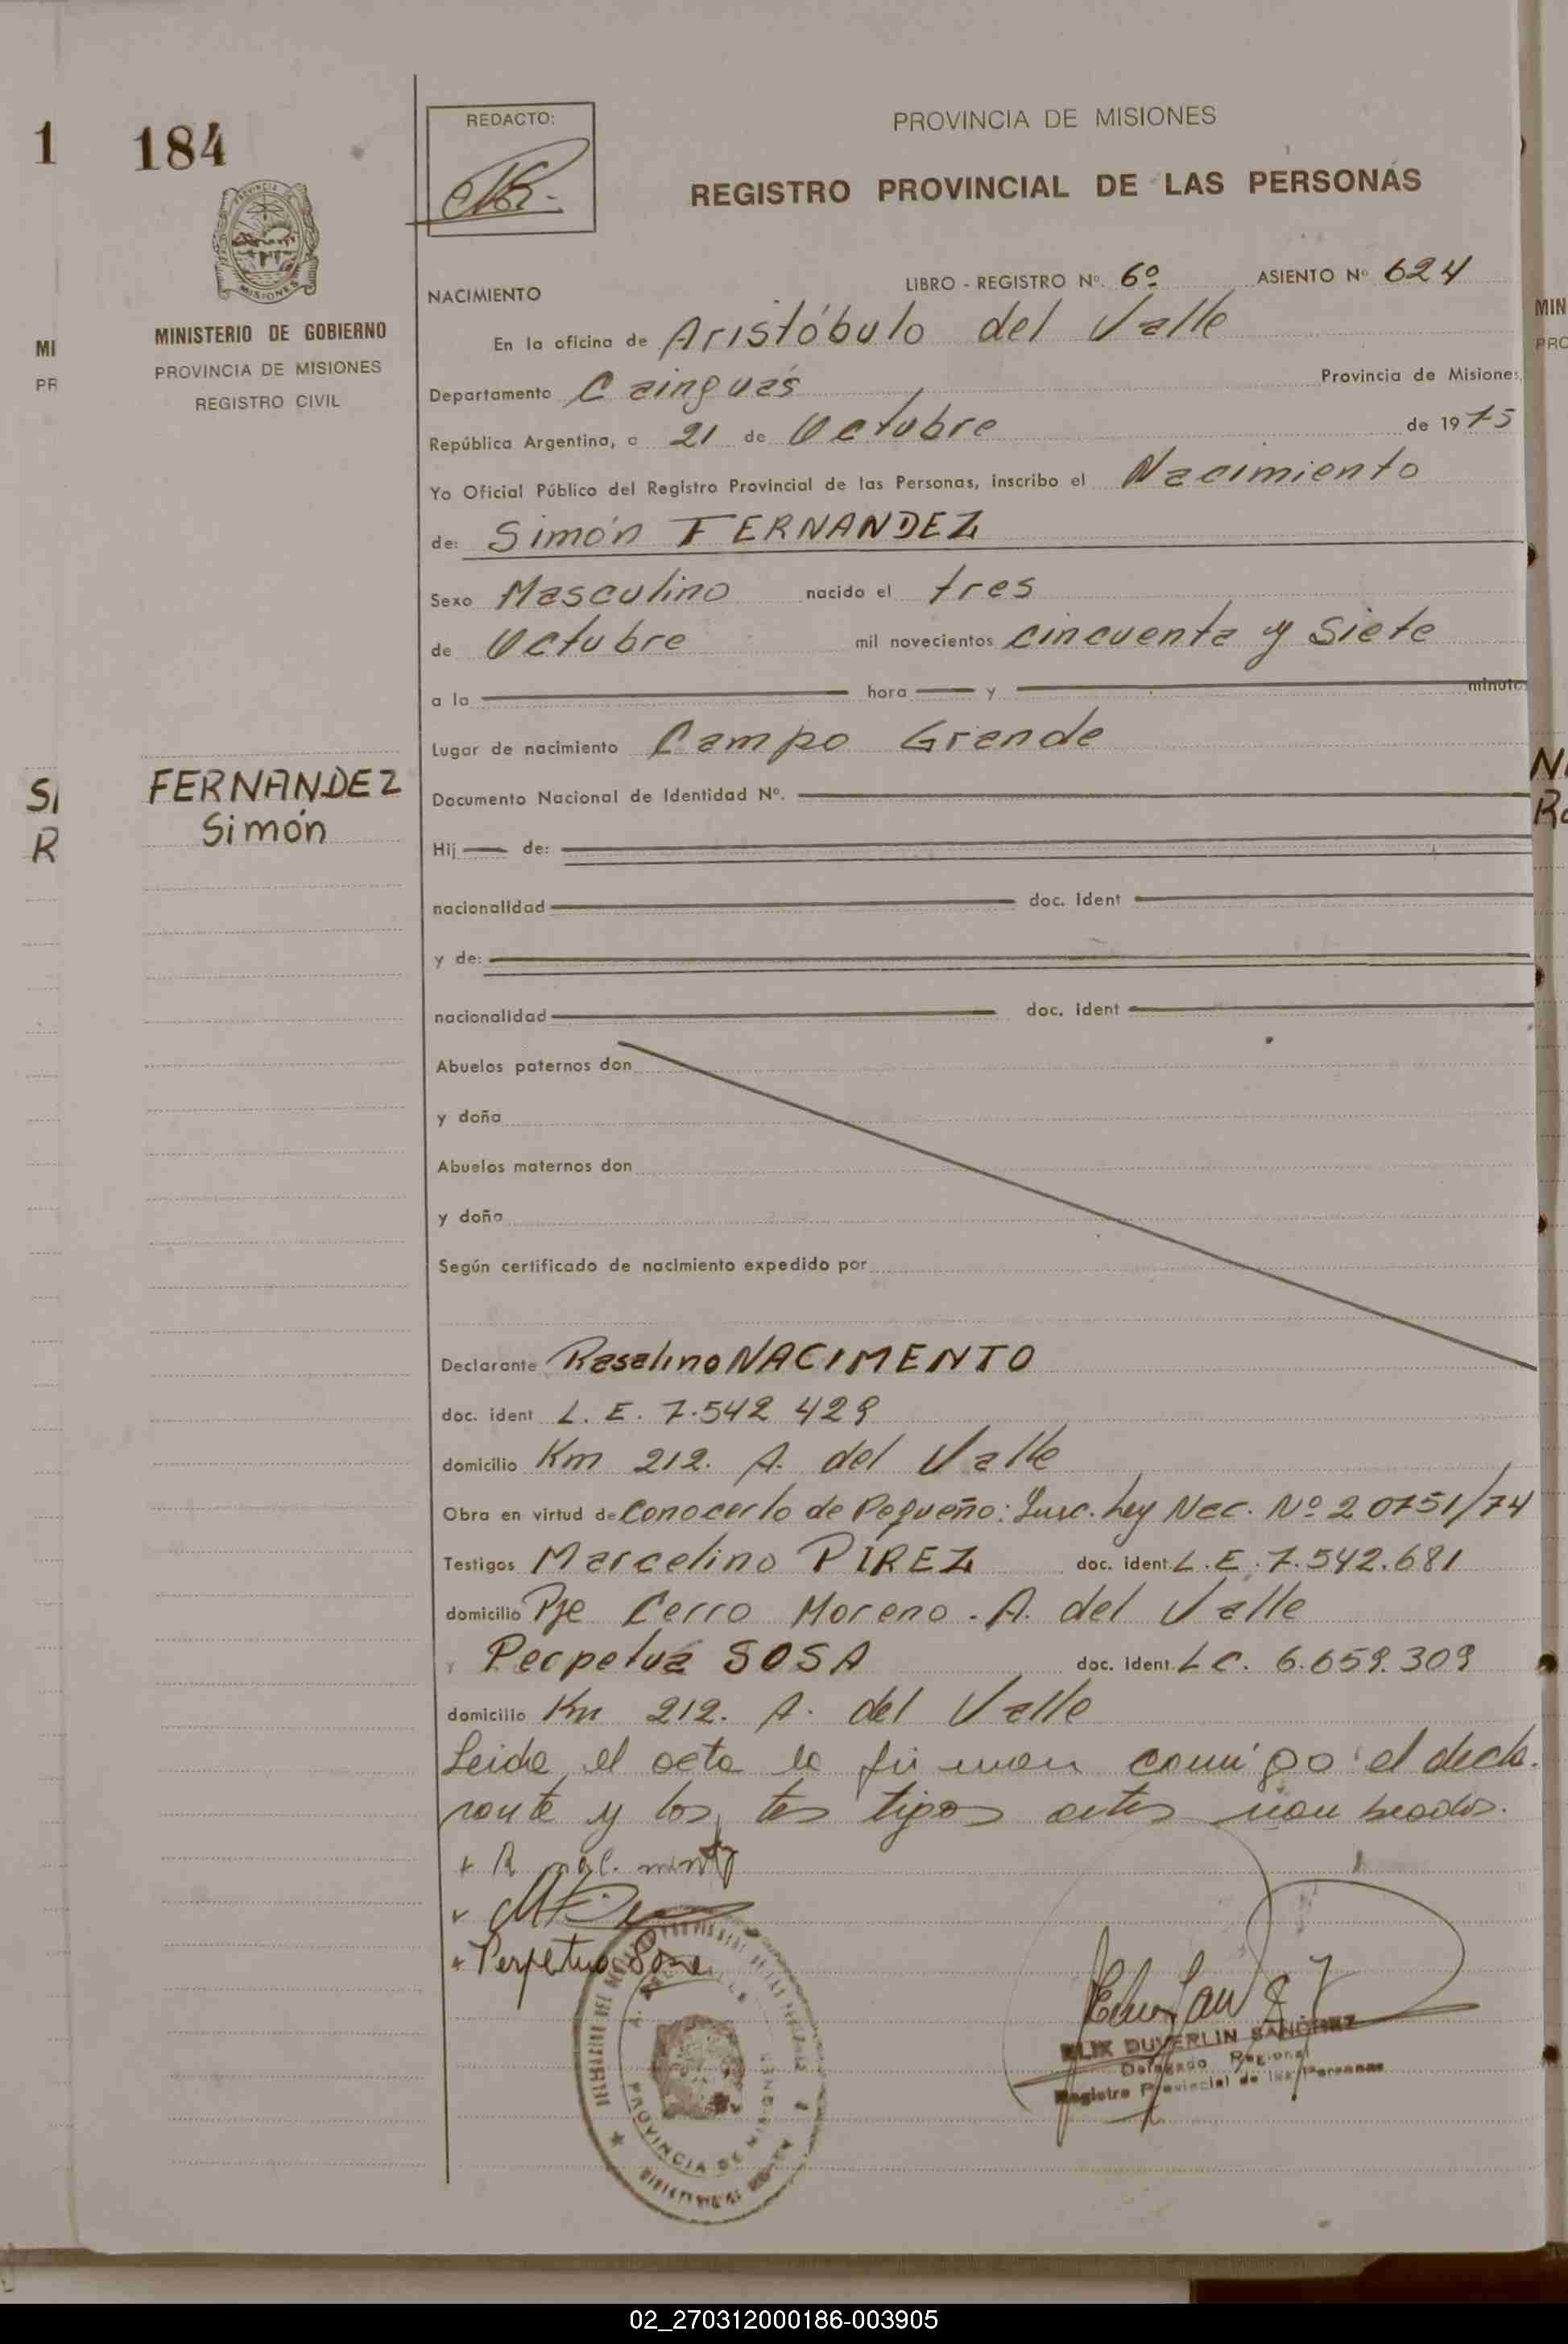 1 184
REDACTO:
PROVINCIA DE MISIONES
REGISTRO PROVINCIAL DE LAS PERSONAS
MISIONES
MINISTERIO DE GOBIERNO
PROVINCIA DE MISIONES
REGISTRO CIVIL
NACIMIENTO LIBRO - REGISTRO Nº. 6º ASIENTO Nº 624
En la oficina de Aristóbulo del Valle
Departamento Cainguás Provincia de Misiones,
República Argentina, a 21 de Octubre de 1975
Yo Oficial Público del Registro Provincial de las Personas, inscribo el Nacimiento
de: Simón FERNANDEZ
Sexo Masculino nacido el tres
de Octubre mil novecientos cincuenta y siete
a la hora y minutos
Lugar de nacimiento Campo Grande
FERNANDEZ
Simón
Documento Nacional de Identidad Nº.
Hij de:
nacionalidad doc. ident
y de:
nacionalidad doc. ident
Abuelos paternos don
y doña
Abuelos maternos don
y doña
Según certificado de nacimiento expedido por
Declarante Rasalino NACIMENTO
doc. ident L. E. 7.542 429
domicilio Km 212. A. del Valle
Obra en virtud de Conocerlo de Pequeño: Insc. Ley Nac. Nº 20751/74
Testigos Marcelino PIREZ doc. ident. L. E. 7.542.681
domicilio Pje Cerro Moreno. A. del Valle
y Perpetua SOSA doc. ident. L C. 6.659.309
domicilio Km 212. A. del Valle
Leida el acta la firman conmigo el decla-
rante y los testigos antes nombrados.
Perpetua Sosa
ELIX DUVERLIN SANCHEZ
Delegado Regional
Registro Provincial de las Personas
PROVINCIA DE MISIONES
02_270312000186-003905